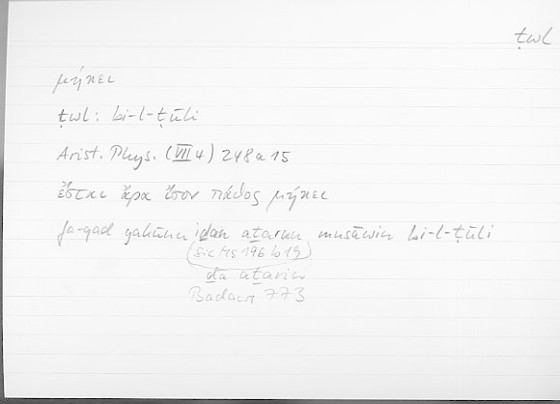 ṭwl
μήκει
ṭwl: bi-l-ṭūli
Arist. Phys. (VII 4) 248a15
ἔσται ἄρα ἴσον πάθος μήκει
fa-qad yakūnu iḏan aṯarun musāwin bi-l-ṭūli
(sic Hs 196b19)
ḏā aṯarin
Badawī 773